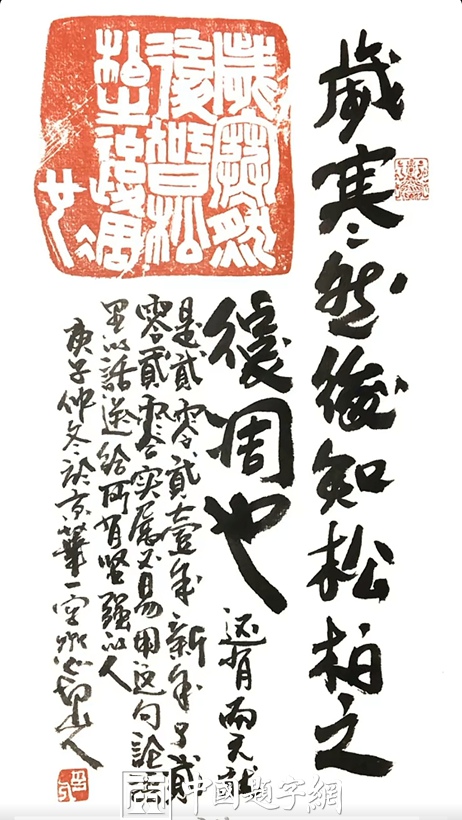 歲寒然後知松柏之
後周也
还有兩天就
是貳零貳壹年新年了貳
零貳零实属不易用这句論語
里的話送给所有坚强的人
庚子仲冬於京華一空山人
歲寒然
後智松
柏之後周
也
中國題字網